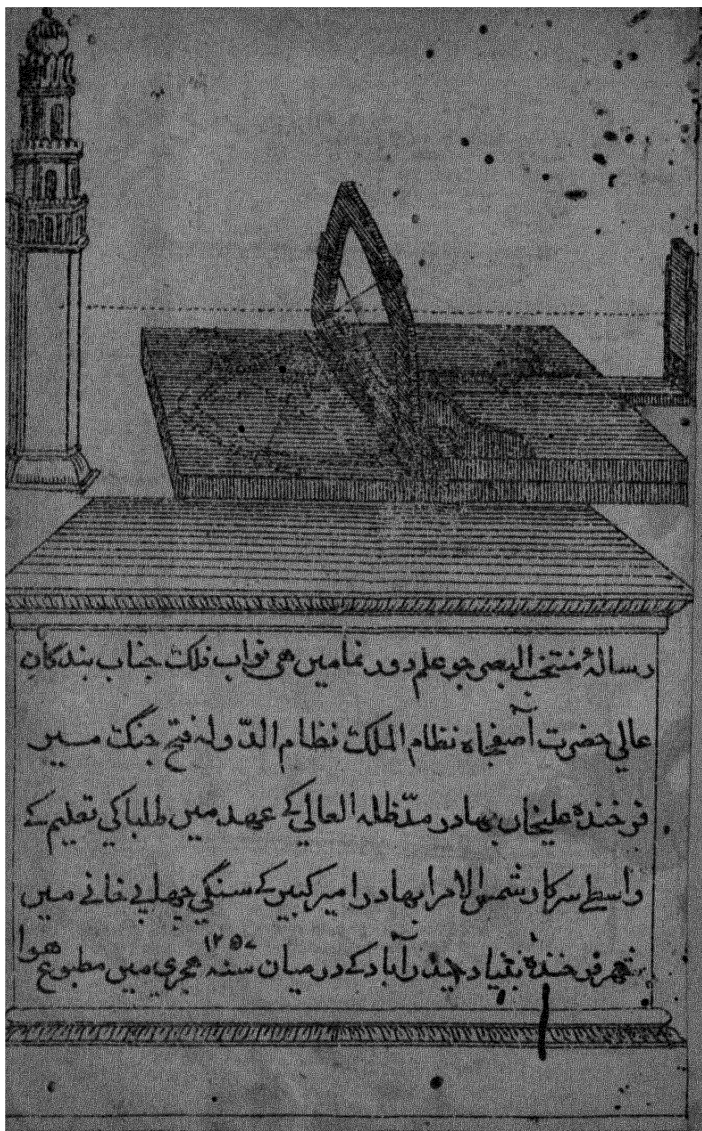 رسالۂ منتخب البصر جو علم دور نما میں هی نواب فلک جناب بندکان
عالي حضرت آصفجاه نظام الملک نظام الدّوله فتح جنگ میر
فرخنده علیخاں بهادر مدّ ظله العالي کے عهد میں طلبا کي تعلیم کے
واسطے سرکار شمس الامرا بهادر امیر کبیر کے سنگي چهاپے خانے میں
شهر فرخنده بنیاد حیدرآباد کے درمیان سنه ۱۲۵۷ هجري میں مطبوع هوا